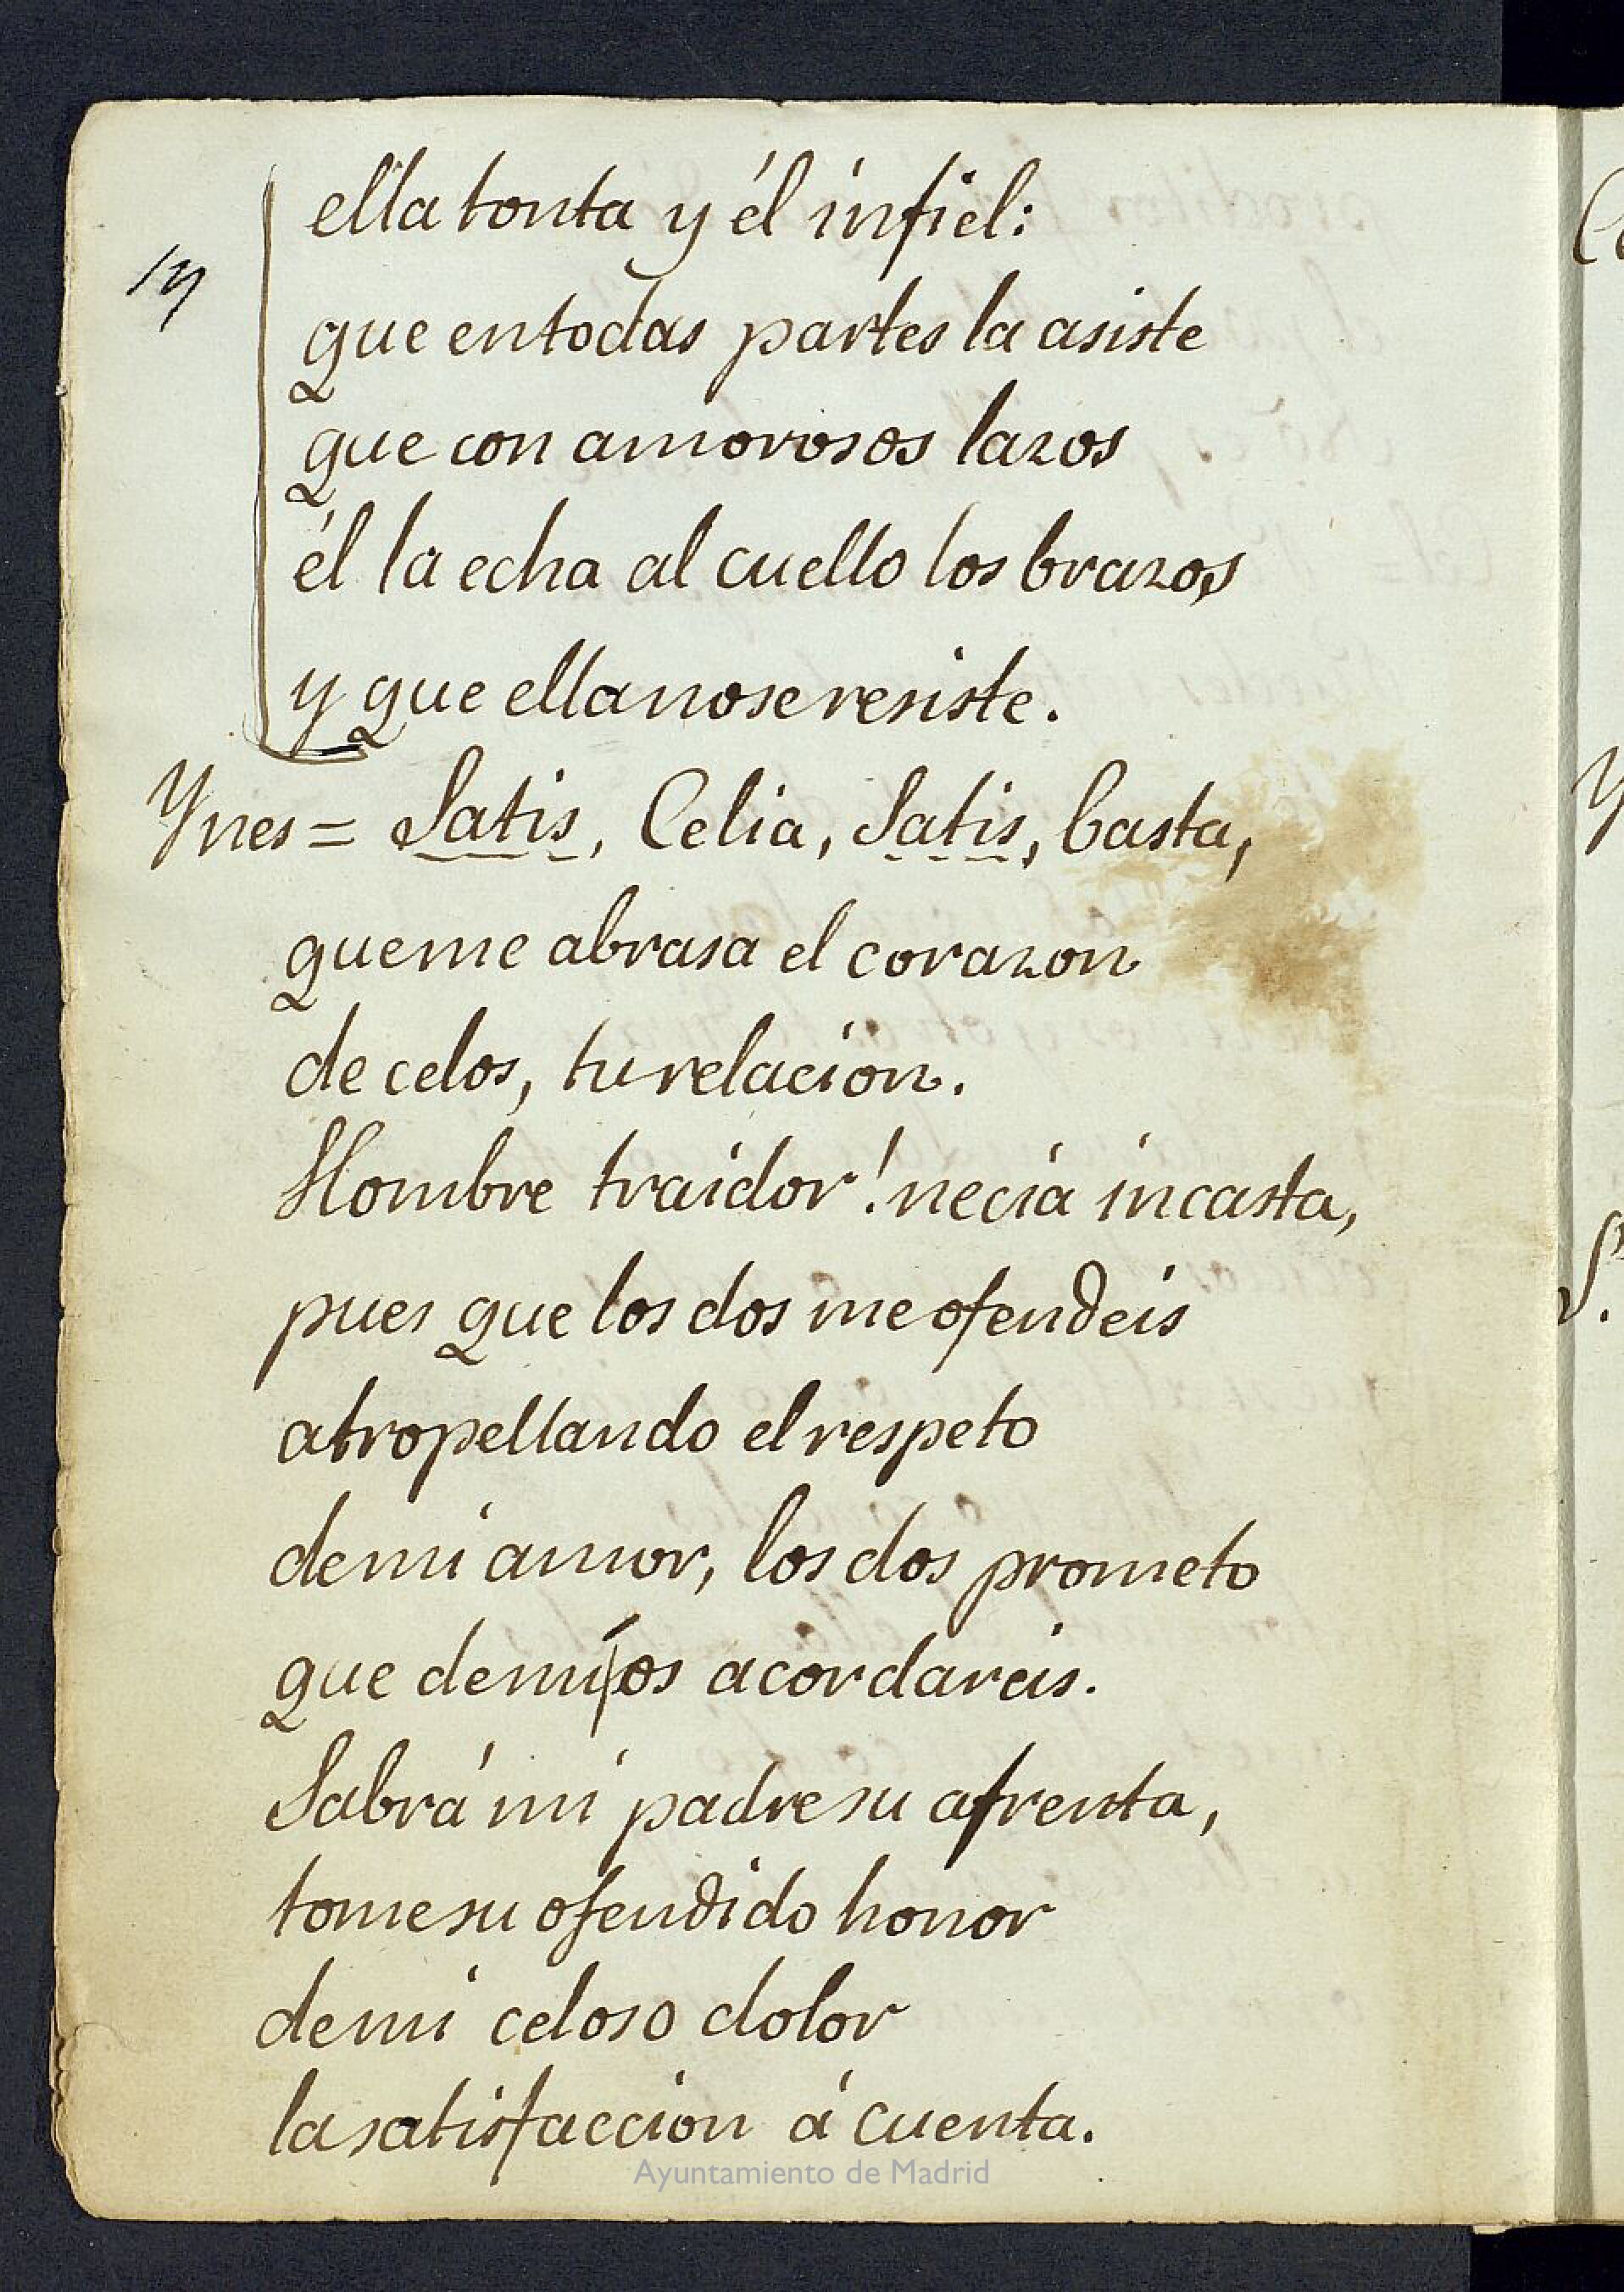 ella tonta y él infiel:
que en todas partes la asiste
que con amorosos lazos
él la echa al cuello los brazos
y que ella no se resiste.
Ynes = Satis, Celia, Satis, basta,
que me abrasa el corazon
de celos, tu relacion.
Hombre traidor! necia incasta,
pues que los dos me ofendeis
atropellando el respeto
de mi amor, los dos prometo
que de mi os acordareis.
Sabrá mi padre su afrenta,
tome su ofendido honor
de mi celoso dolor
la satisfaccion á cuenta.
Ayuntamiento de Madrid